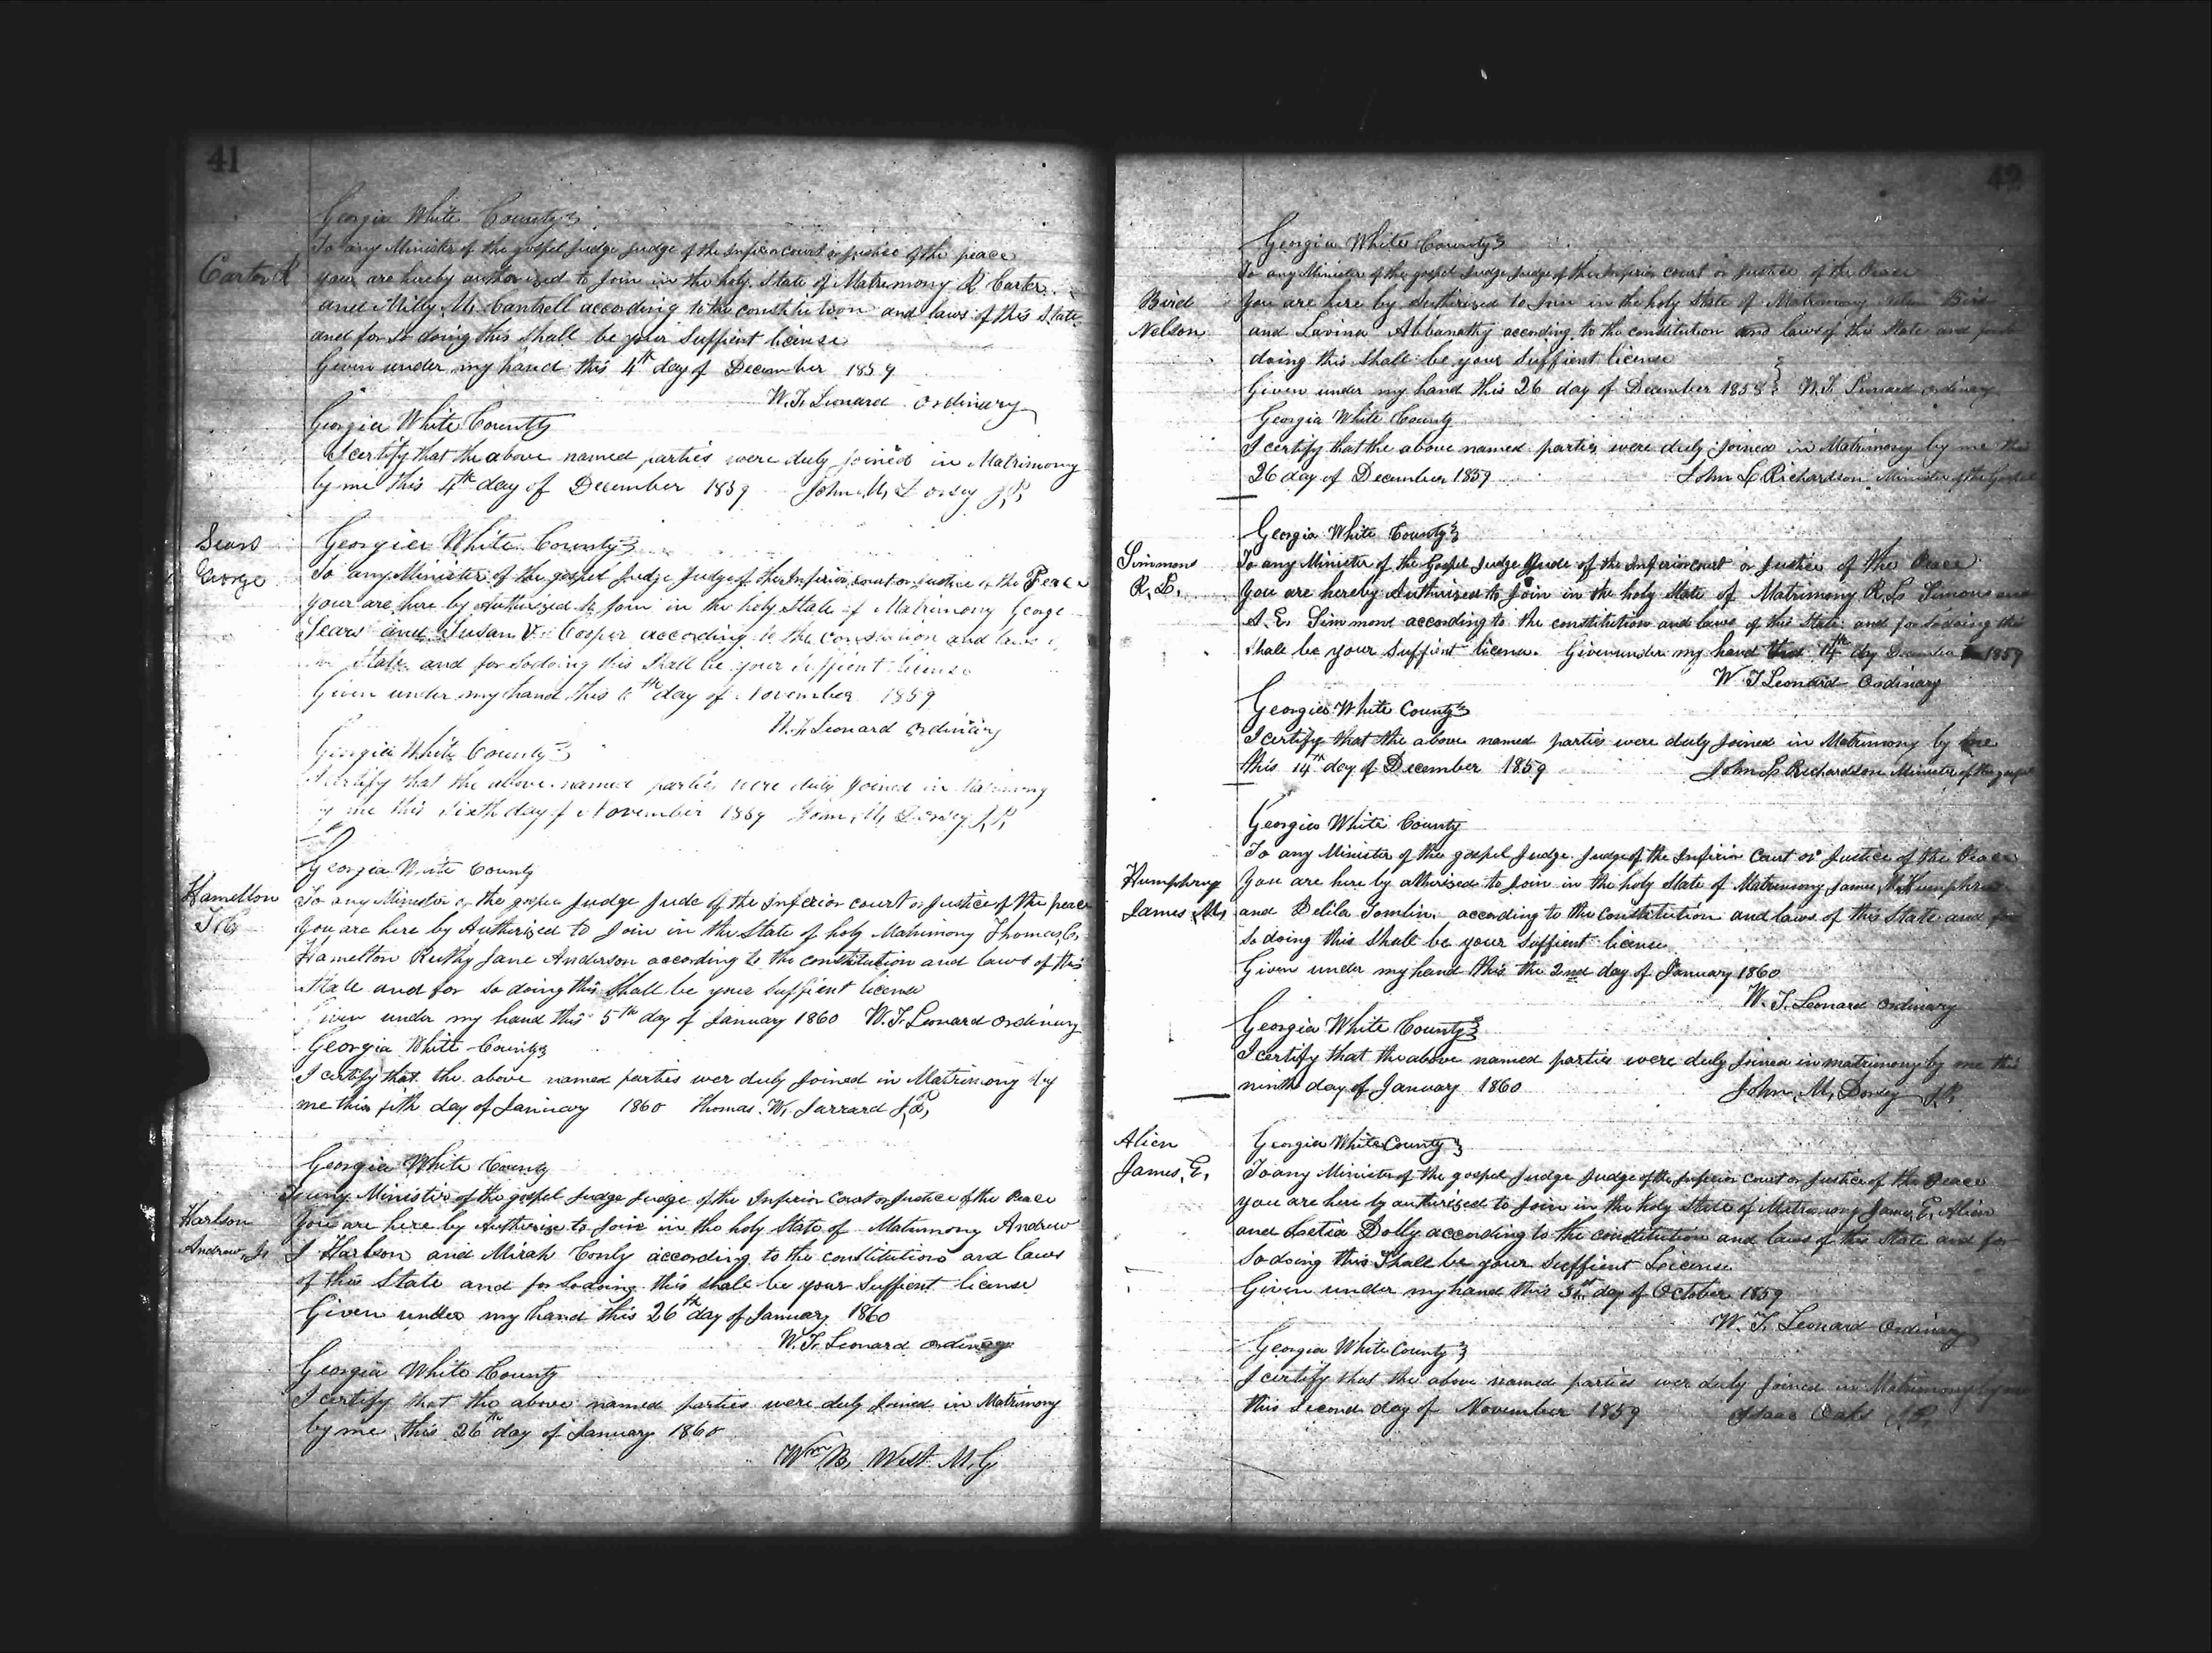 41
Georgia White County
To any Minister of the gospel Judge Judge of the Inferior court or justice of the peace
Carter R
your are hereby authorized to Join in the holy State of Matrimony R Carter
and Milly M. Cantrell according to the constitution and laws of this State
and for so doing this shall be your Suffient license
Given under my hand this 4th day of December 1859
W. T. Leonard Ordinary
Georgia White County
I certify that the above named parties were duly joined in Matrimony
by me this 4th day of December 1859 John M. Dorsey J.P.
Sears
George
Georgia White County
To any Minister of the gospel Judge Judge of the Inferior court or justice of the Peace
your are here by Authorized to Join in the holy State of Matrimony George
Sears and Susan V. Cooper according to the and laws
State and for So doing this Shall be your Suffient license
Given under my hand this 6th day of November 1859
W. T. Leonard Ordinary
Georgia White County
I certify that the above named parties were duly Joined in Matrimony
by me this sixth day of November 1859 John M. Dorsey J.P.
Georgia White County
Hamelton
T. C.
To any Minister of the gospel Judge Jude of the Inferior court or Justice of the peace
You are here by Authorized to Join in the State of holy Matrimony Thomas, C.
Hamelton Ruthy Jane Anderson according to the constitution and laws of this
State and for so doing this Shall be your Suffient license
Given under my hand this 5th day of January 1860 W. T. Leonard Ordinary
Georgia White County
I certify that the above named parties wer duly Joined in Matrimony by
me this fith day of January 1860 Thomas. W. Jarrard J.P.
Georgia White County
To any Minister of the gospel Judge Judge of the Inferior Court or Justice of the Peace
Harlson
Andrew, J.
You are here by Authorize to Join in the holy State of Matrimony Andrew
J Harlson and Mirah Conly according to the constitution and laws
of this State and for So doing this shall be your Suffient license
Given under my hand this 26th day of January 1860
W. T. Leonard ordinary
Georgia White County
I certify that the above named parties were duly Joined in Matrimony
by me this 26th day of January 1860
Wm B. West. M. G
42
Georgia White County
To any Minister of the gospel Judge Judge of the Inferior court or Justice of the Peace
Bird
Nelson
You are here by Autherized to Join in the holy State of Matrimony Nelson Bird
and Lavina Abbanathy according to the constitution and laws of this State and
doing this Shall be your Suffient license
Given under my hand this 26 day of December 1858 W. T. Leonard ordinary
Georgia White County
I certify that the above named parties were duly Joined in Matrimony by me this
26 day of December 1859 John L Richardson Minister of the Gospel
Georgia White County
Simmons
R. L.
To any Minister of the Gospel Judge Jude of the Inferior court or Justice of the Peace
You are hereby Authorized to Join in the holy State of Matrimony R L Simons and
A. E. Simmons according to the constitution and laws of this State and for So doing this
shale be your Suffient license. Given under my hand 14th day December 1859
W. T Leonard Ordinary
Georgia White County
I certify that the above named parties were duly Joined in Matrimony by me
this 14th day of December 1859 John L Richardson Minister of the gospel
Georgia White County
To any Minister of the gospel Judge. Judge of the Inferior Court or Justice of the Peace
Humphrey
James, M.
You are here by atherized to Join in the holy State of Matrimony James, M. Humphrey
and Delila Tomlin. according to the Constitution and laws of this State and for
so doing this shall be your Suffient license
Given under my hand this the 2nd day of January 1860
W. T. Leonard Ordinary
Georgia White County
I certify that the above named partis were duly Joined in matrimony by me this
ninth day of January 1860 John, M, Dorsey J.P.
Alien
James, E.
Georgia White County
To any Minister of the gospel Judge Judge of the Inferior Court or Justice of the Peace
you are here by autherized to Join in the holy State of Matrimony James, E. Alien
and Letia Dolly according to the constitution and laws of this State and for
So doing this Shall be your Suffient License
Given under my hand this 31st day of October 1859
W. T. Leonard Ordinary
Georgia White County
I certify that the above named parties wer duly Joined in Matrimony by me
this second day of November 1859 Isaac Oaks J.P.